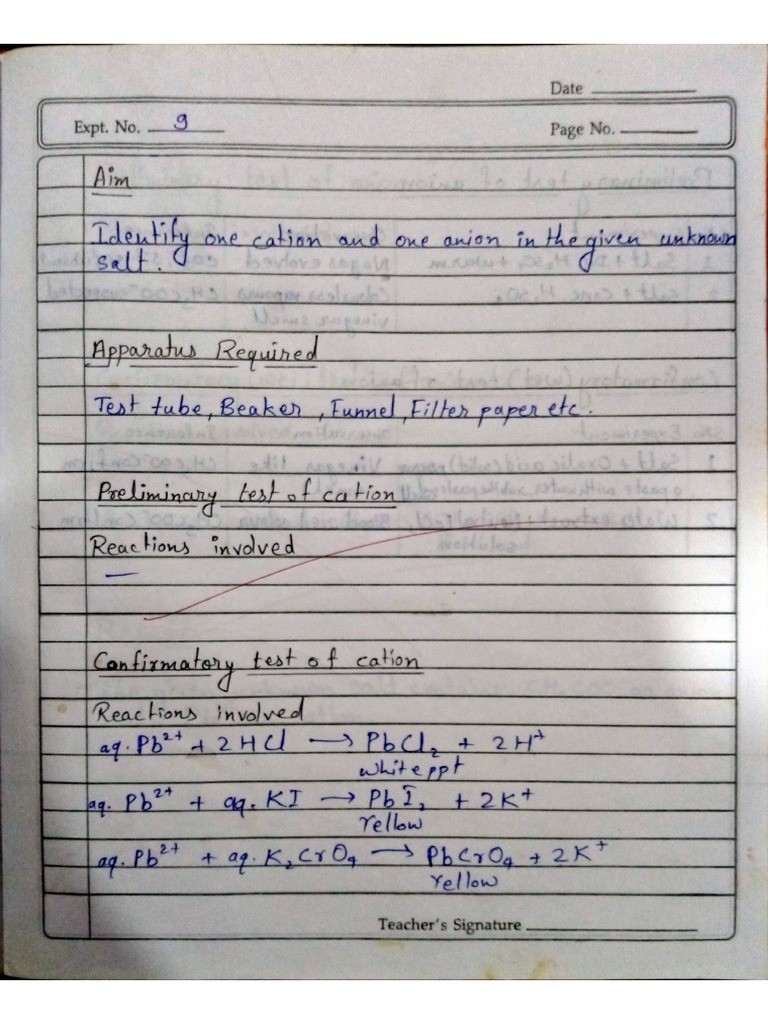 Date
Expt. No. 9
Page No.
Aim
Identify one cation and one anion in the given unknown
salt.
Apparatus Required
Test tube, Beaker, Funnel, Filter paper etc.
Preliminary test of cation
Reactions involved
Confirmatory test of cation
Reactions involved
aq. Pb²⁺ + 2HCl → PbCl₂ + 2H⁺
white ppt
aq. Pb²⁺ + aq. KI → PbI₂ + 2K⁺
Yellow
aq. Pb²⁺ + aq. K₂CrO₄ → PbCrO₄ + 2K⁺
Yellow
Teacher's Signature